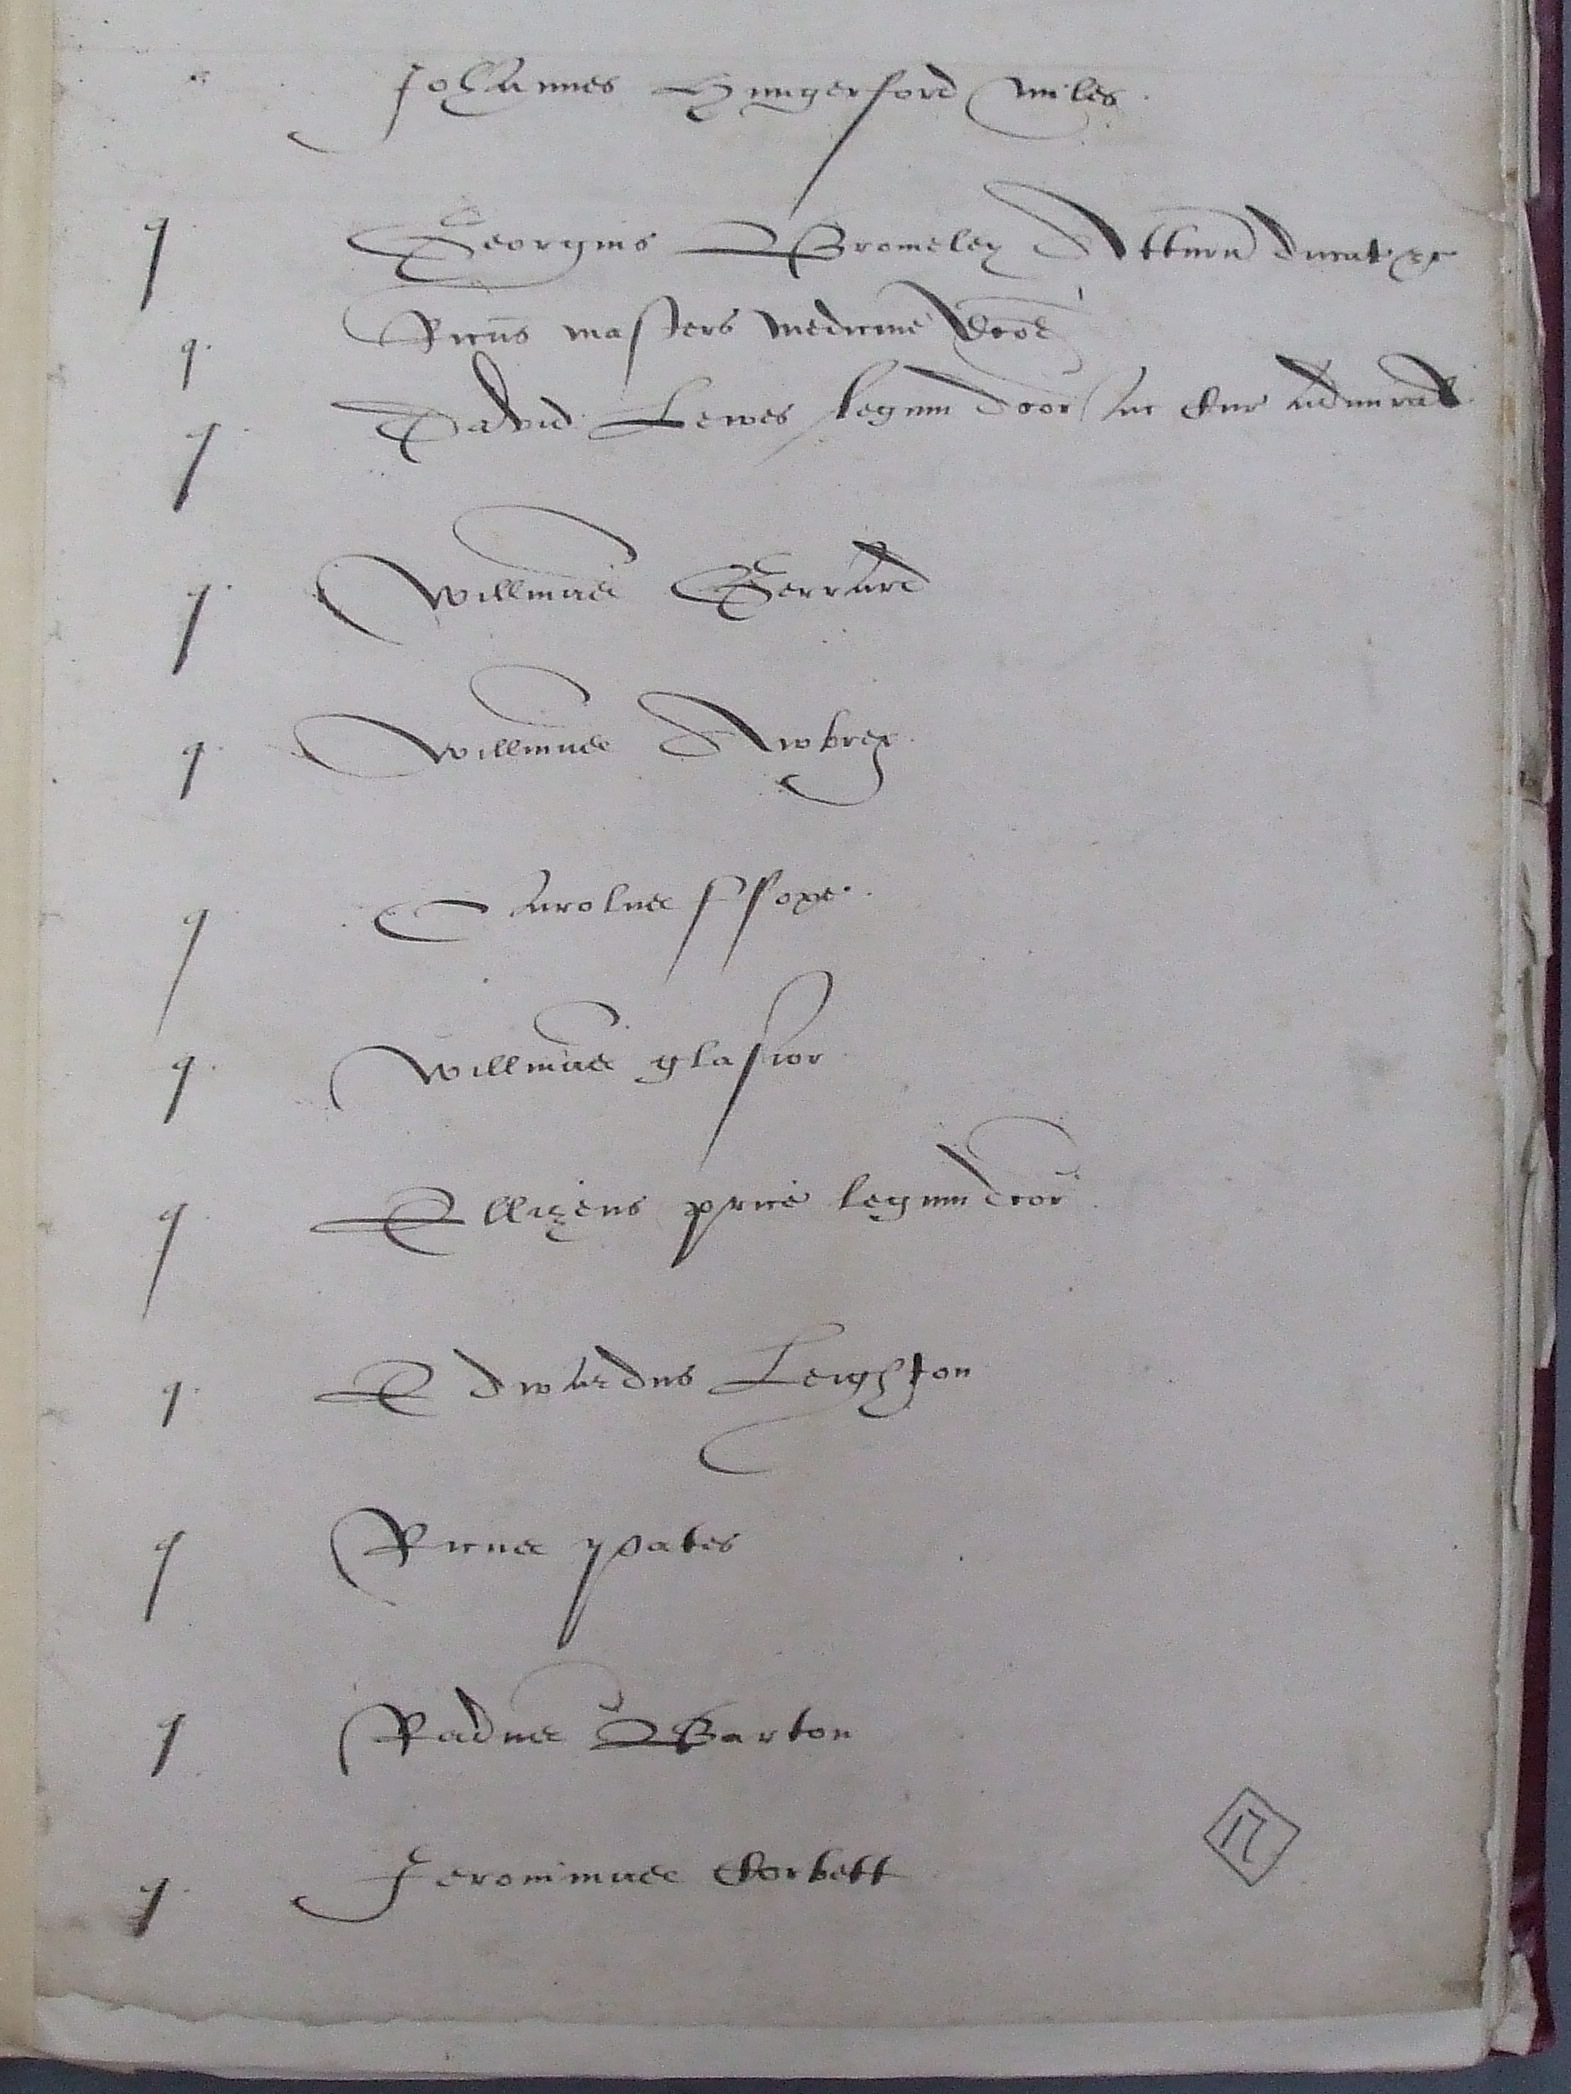 Johannes Hungerford miles
q Georgius Bromeley Atturn ducat &c
q Ricus Masters medicine dcor
q David Lewes legum dcor ac Cur admiral
q Willmus Gerrard
q Willmus Awbrey
q Carolus ffoxe
q Willmus glasior
q Ellizeus price legum dcor
q Edwardus Leighton
q Ricus pates
q Radus Barton
q Jeronimus Corbett
17